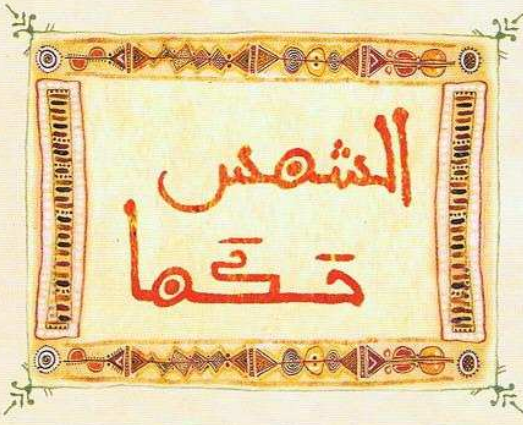 الشمس
حَكَما